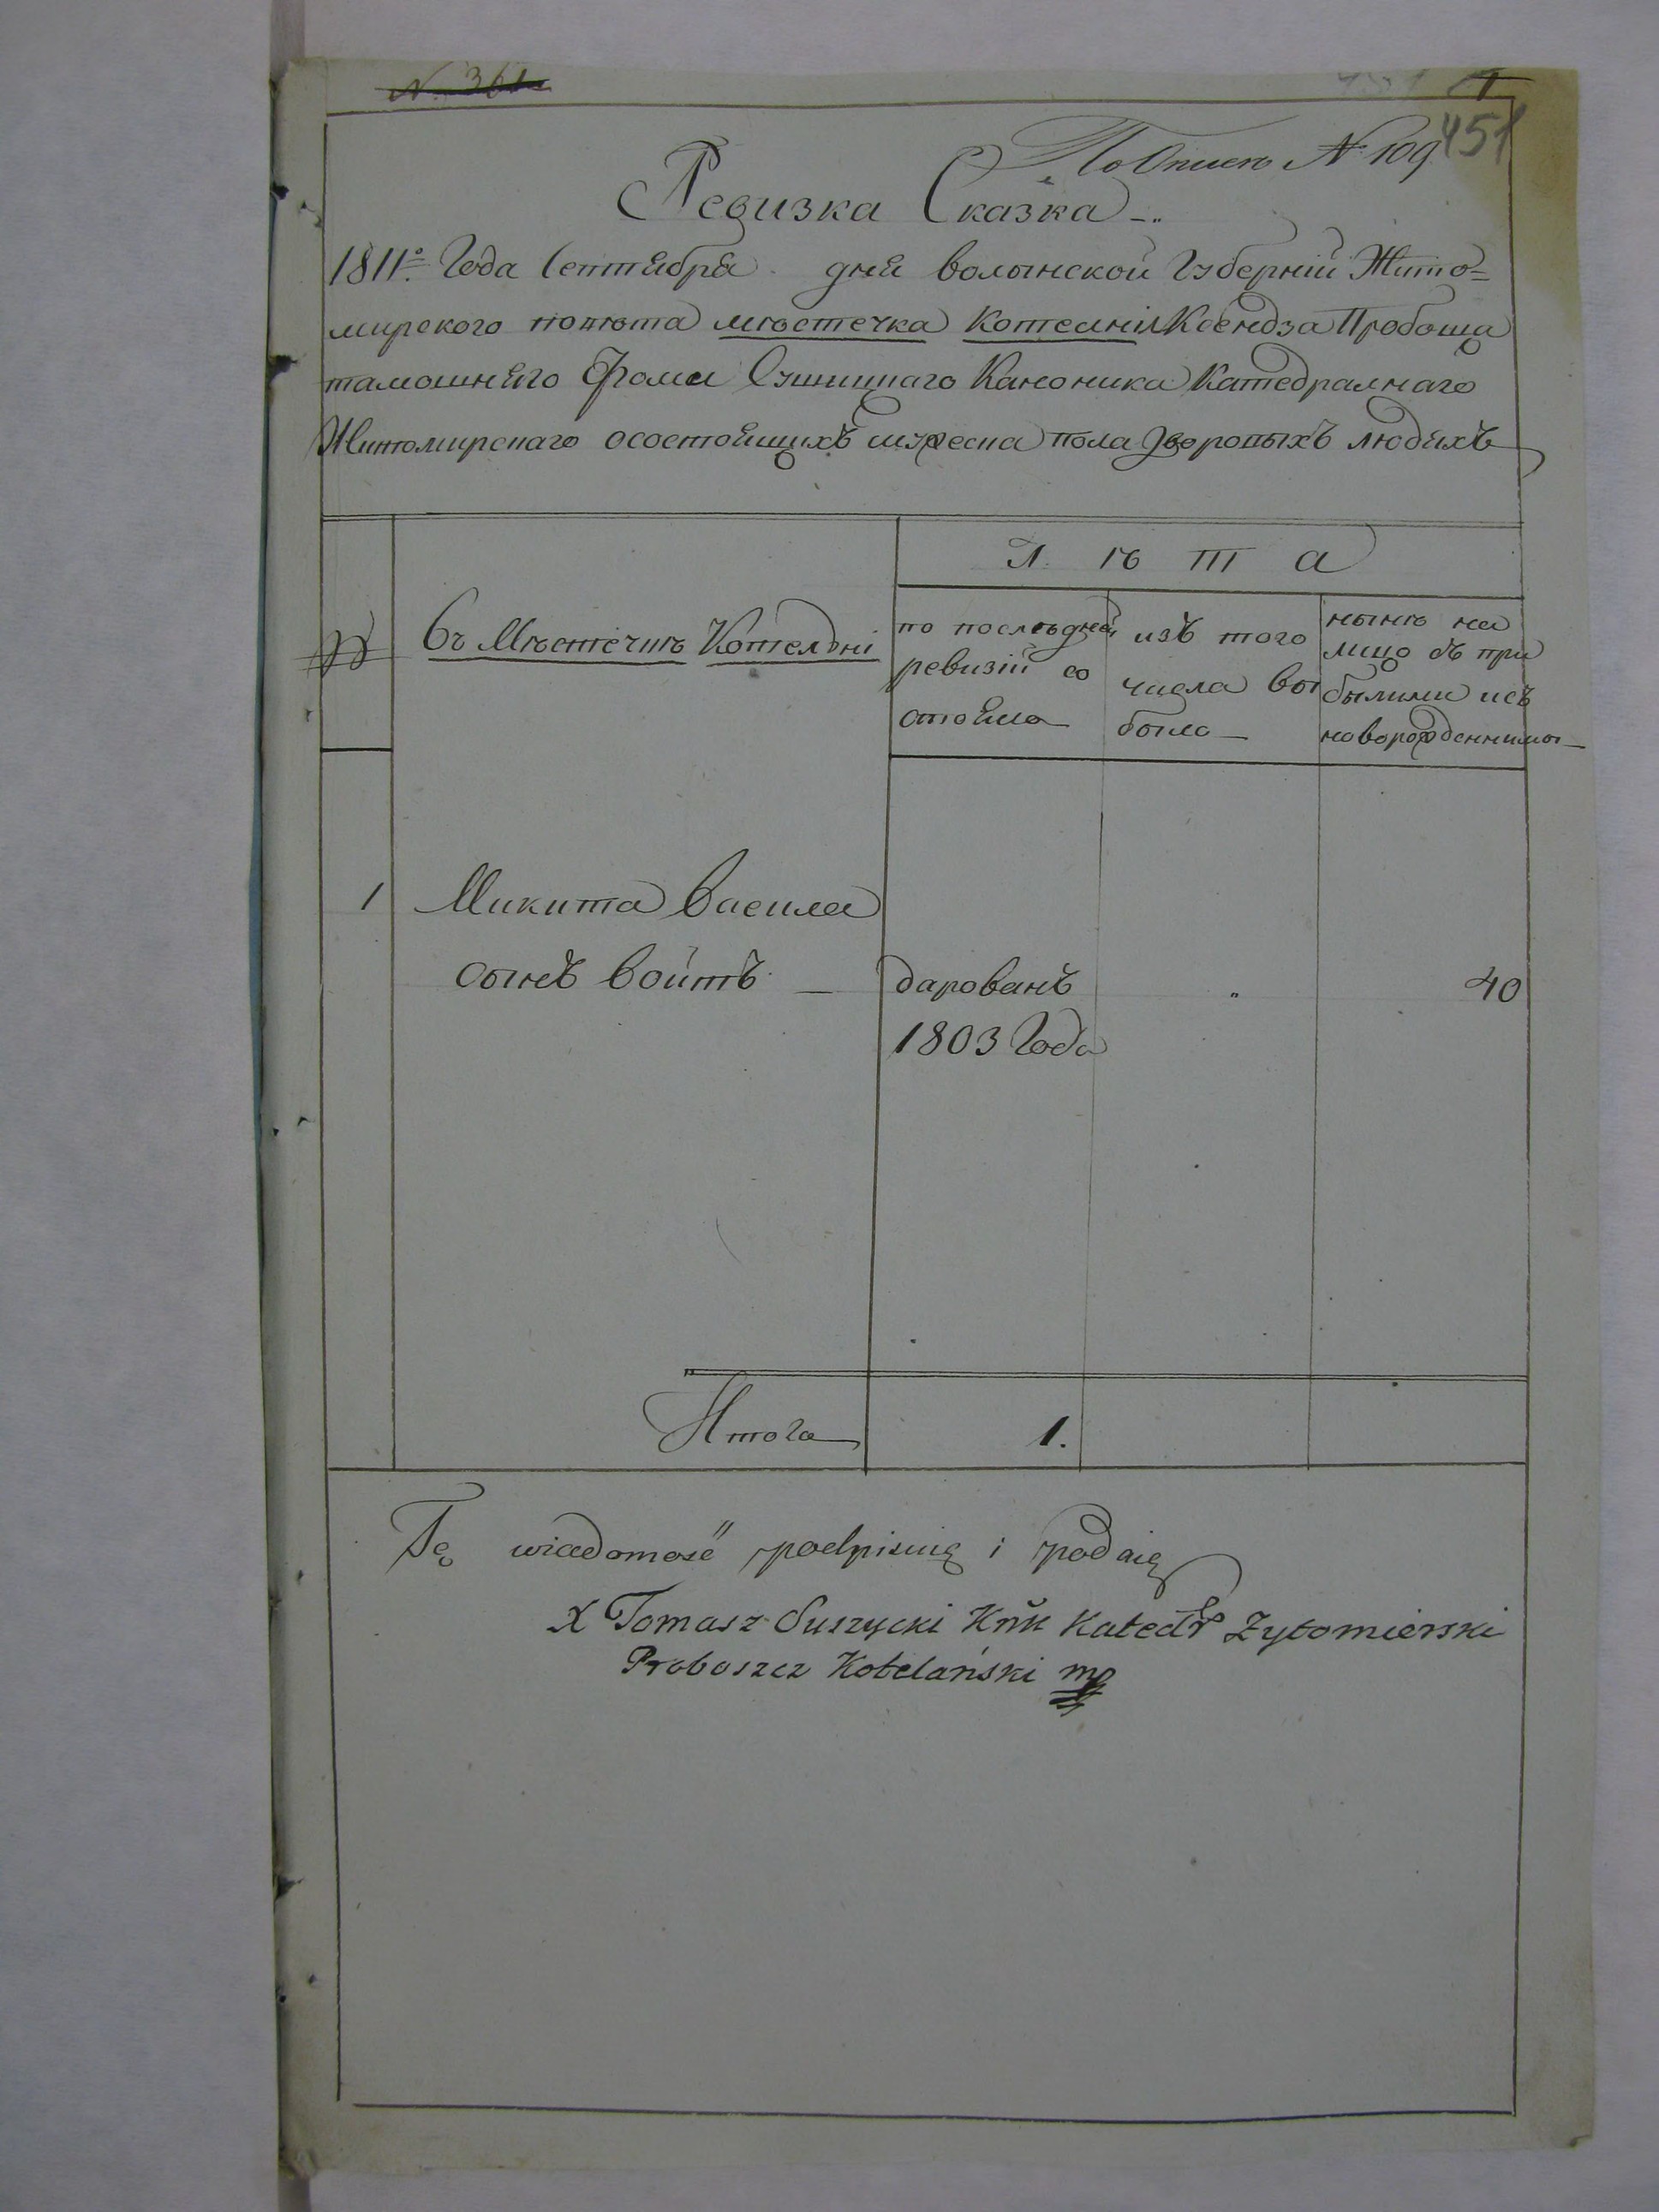 N. 361
1
451
По Описи № 109
Ревизка Сказка
1811º Года Септября дня волынской Губернiи Жито=
мирского повѣта мѣстечка Котелнi Ксендза Пробоща
тамошняго Фомы Сушицкаго Каноника Катедралнаго
Житомирскаго осостоящихъ мужеска пола дворовыхъ людяхъ
Л ѣ т а
№
Въ Мѣстечкѣ Котелнѣ
по послѣдней
ревизiи со
стояло
изъ того
числа вы
было
нынѣ на
лицо съ при
былими исъ
новорожденними
1 Микита Васила
сынъ войтъ — дарованъ " 40
1803 Года
Итого 1.
Tę wiadomość podpisuię i podaię
X Tomasz Suszycki Knk Katedr Zytomierski
Proboszcz Kotelański mp